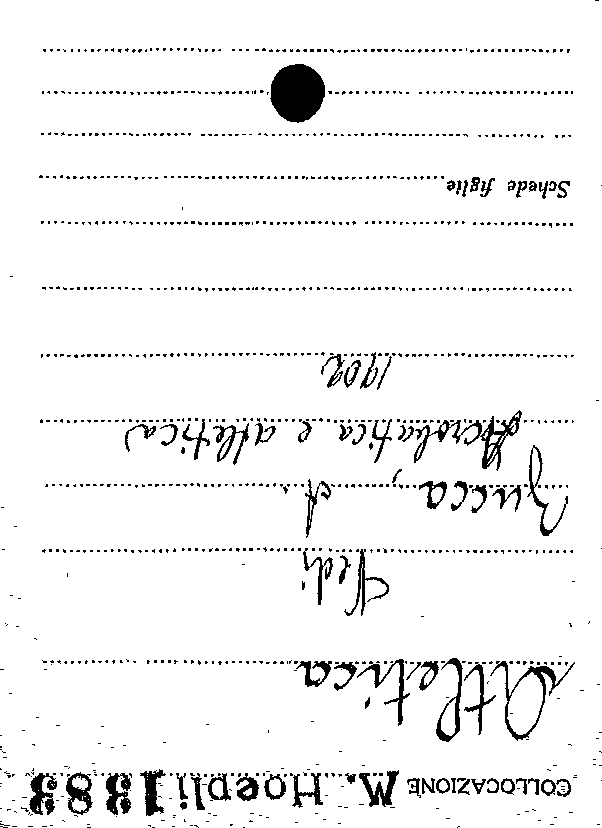 COLLOCAZIONE M. Hoepli 1383
Atletica
Vedi
Zucca, A.
Acrobatica e atletica
1902
Schede figlie